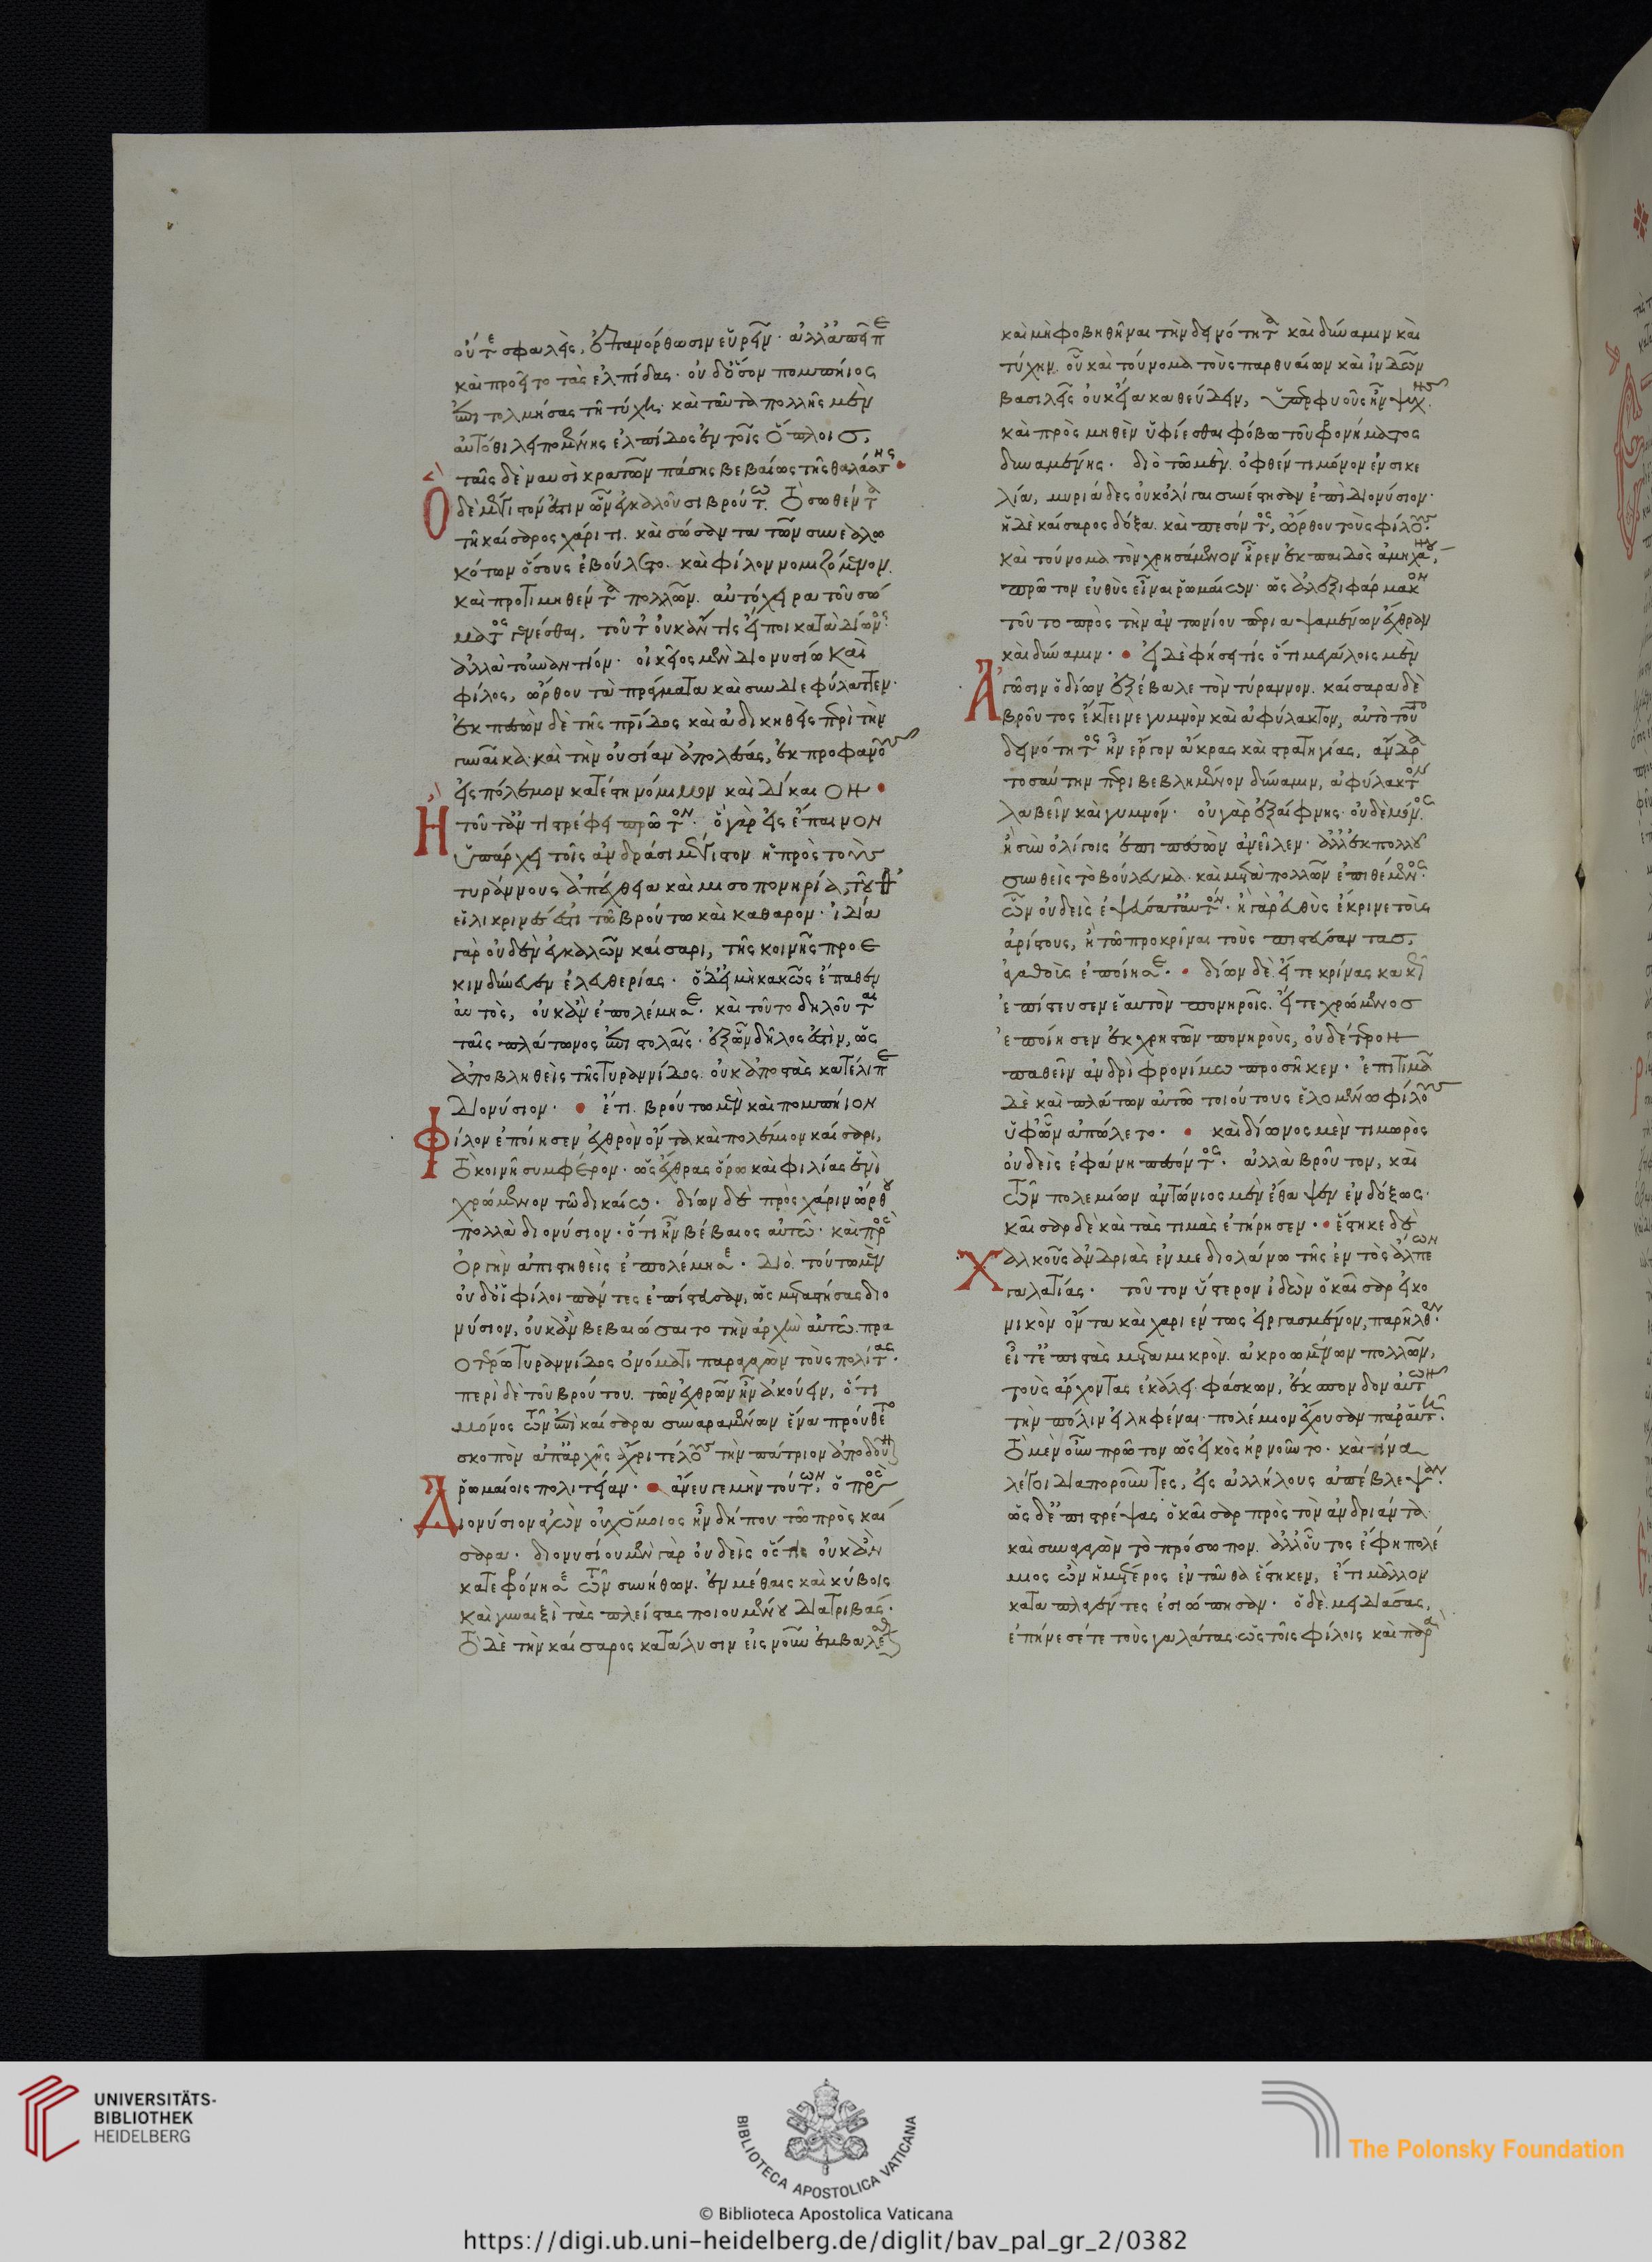 οὔτε σφαλεὶς, ἐπανόρθωσιν εὑρεῖν· ἀλλ' ἀπεῖπε
καὶ προεῖτο τὰς ἐλπίδας· οὐδ' ὅσον πομπήιος
ἐπιτολμήσας τῆ τύχη· καὶ ταῦτα πολλῆς μὲν
αὐτόθι λειπομένης ἐλπίδος ἐν τοῖς ὅπλοις,
ταῖς δὲ ναυσὶ κρατῶν πάσης βεβαίως τῆς θαλάσσης·
Ὃ δὲ μέγιστόν ἐστιν ὧν ἐγκαλοῦσι βρούτω. τὸ σωθέντα
τῆ καίσαρος χάριτι. καὶ σώσαντα τῶν συνεαλω
κότων ὅσους ἐβούλετο. καὶ φίλον νομιζόμενον.
καὶ προτιμηθέντα πολλῶν. αὐτόχειρα τοῦ σώ
ματος γενέσθαι, τοῦτ' οὐκ ἄν τις εἴποι κατὰ δίωνος·
ἀλλὰ τοὐναντίον· οἰκεῖος μὲν διονυσίω καὶ
φίλος, ὤρθου τὰ πράγματα καὶ συνδιεφύλαττεν·
ἐκπεσὼν δὲ τῆς πατρίδος καὶ ἀδικηθεὶς περὶ τὴν
γυναῖκα· καὶ τὴν οὐσίαν ἀπολέσας, ἐκ προφανοῦς
εἰς πόλεμον κατέστη νόμιμον καὶ δίκαιον·
Ἢ τοῦτον τι στρέφει πρῶτον· ὃ γὰρ εἰς ἔπαινον
ὑπάρχει τοῖς ἀνδράσι μέγιστον ἡ πρὸς τοὺς
τυράννους ἀπέχθεια καὶ μισοπονηρία, τοῦτ'
εἰλικρινές ἐστι τῶ βρούτω καὶ καθαρόν· ἰδία
γὰρ οὐδὲν ἐγκαλῶν καίσαρι, τῆς κοινῆς προε
κινδύνευεν ἐλευθερίας· ὁ δ' εἰ μὴ κακῶς ἔπαθεν
αὐτὸς, οὐκ ἂν ἐπολέμησε· καὶ τοῦτο δηλοῦται
ταῖς πλάτωνος ἐπιστολαῖς· ἐξ ὧν δῆλός ἐστιν, ὡς
ἀποβληθεὶς τῆς τυραννίδος. οὐκ ἀποστὰς κατέλιπε
διονύσιον· ἔτι. βρούτω μὲν καὶ πομπήιον
Φίλον ἐποίησεν ἐχθρὸν ὄντα καὶ πολέμιον καίσαρι,
τὸ κοινῆ συμφέρον· ὡς ἔχθρας ὅρω καὶ φιλίας ἑνὶ
χρώμενον τῶ δικαίω· δίων δὲ πρὸς χάριν ὤρθου
πολλὰ διονύσιον· ὅτι ἦν βέβαιος αὐτῶ· καὶ πρὸς
ὀργὴν ἀπιστηθεὶς ἐπολέμησε· διὸ τούτω μὲν
οὐδ' οἱ φίλοι πάντες ἐπίστευσαν, ὡς μεταστήσας διο
νύσιον, οὐκ ἂν βεβαιώσαιτο τὴν ἀρχὴν αὐτῶ· πρα
οτέρω τυραννίδος ὀνόματι παραγαγὼν τοὺς πολίτας·
περὶ δὲ τοῦ βρούτου. τῶν ἐχθρῶν ἦν ἀκούειν, ὅτι
μόνος τῶν ἐπὶ καίσαρα συναραμένων ἕνα προύθετο
σκοπὸν ἀπ' ἀρχῆς ἄχρι τέλους τὴν πάτριον ἀποδοῦναι
ῥωμαίοις πολιτείαν· ἄνευ γε μὴν τούτων, ὁ πρὸς
Διονύσιον ἀγὼν οὐχ ὅμοιος ἦν δήπου τῶ πρὸς καί
σαρα· διονυσίου μὲν γὰρ οὐδεὶς ὅστις οὐκ ἂν
κατεφρόνησε τῶν συνήθων. ἐν μέθαις καὶ κύβοις
καὶ γυναιξὶ τὰς πλείστας ποιουμένου διατριβάς·
τὸ δὲ τὴν καίσαρος κατάλυσιν εἰς νοῦν ἐμβαλέσθαι
καὶ μὴ φοβηθῆναι τὴν δεινότητα καὶ δύναμιν καὶ
τύχην. οὗ καὶ τοὔνομα τοὺς παρθυαίων καὶ ἰνδῶν
βασιλεῖς οὐκ εἴα καθεύδειν, ὑπερφυοῦς ἦν ψυχῆς.
καὶ πρὸς μηθὲν ὑφίεσθαι φόβω τοῦ φρονήματος
δυναμένης· διὸ τῶ μὲν. ὀφθέντι μόνον ἐν σικε
λία, μυριάδες οὐκ ὀλίγαι συνέστησαν ἐπὶ διονύσιον·
ἡ δὲ καίσαρος δόξα. καὶ πεσόντος, ὤρθου τοὺς φίλους·
καὶ τοὔνομα τὸν χρησάμενον ἦρεν ἐκ παιδὸς ἀμηχάνου,
πρῶτον εὐθὺς εἶναι ῥωμαίων· ὡς ἀλεξιφάρμακον
τοῦτο πρὸς τὴν ἀντωνίου περιαψαμένων ἔχθραν
καὶ δύναμιν· εἰ δὲ φήσει τις ὅτι μεγάλοις μὲν
Ἀγῶσιν ὁ δίων ἐξέβαλε τὸν τύραννον. καίσαρα δὲ
βροῦτος ἔκτεινε γυμνὸν καὶ ἀφύλακτον, αὐτὸ τοῦτο
δεινότητος ἦν ἔργον ἄκρας καὶ στρατηγίας, ἄνδρα
τοσαύτην περιβεβλημένον δύναμιν, ἀφύλακτον
λαβεῖν καὶ γυμνόν· οὐ γὰρ ἐξαίφνης· οὐδὲ μόνος
ἢ σὺν ὀλίγοις ἐπιπεσὼν ἀνεῖλεν· ἀλλ' ἐκ πολλοῦ
συνθεὶς τὸ βούλευμα· καὶ μετὰ πολλῶν ἐπιθέμενος·
ὧν οὐδεὶς ἐψεύσατ' αὐτόν· ἢ γὰρ εὐθὺς ἔκρινε τοὺς
ἀρίστους, ἢ τῶ προκρῖναι τοὺς πιστεύσαντας,
ἀγαθοὺς ἐποίησε· δίων δὲ. εἴτε κρίνας κακῶς
ἐπίστευσεν ἑαυτὸν πονηροῖς. εἴτε χρώμενος
ἐποίησεν ἐκ χρηστῶν πονηροὺς, οὐδέτερον
παθεῖν ἀνδρὶ φρονίμω προσῆκεν· ἐπιτιμᾶ
δὲ καὶ πλάτων αὐτῶ τοιούτους ἑλομένω φίλους
ὑφ' ὧν ἀπώλετο· καὶ δίωνος μὲν τιμωρὸς
οὐδεὶς ἐφάνη πεσόντος· ἀλλὰ βροῦτον, καὶ
τῶν πολεμίων ἀντώνιος μὲν ἔθαψεν ἐνδόξως·
καῖσαρ δὲ καὶ τὰς τιμὰς ἐτήρησεν· ἕστηκε δὲ
Χαλκοῦς ἀνδριὰς ἐν μεδιολάνω τῆς ἐντὸς ἄλπεων
γαλατίας· τοῦτον ὕστερον ἰδὼν ὁ καῖσαρ εἰκο
νικὸν ὄντα καὶ χαριέντως εἰργασμένον, παρῆλθεν·
εἶτ' ἐπιστὰς μετὰ μικρὸν. ἀκροωμένων πολλῶν,
τοὺς ἄρχοντας ἐκάλει· φάσκων, ἔκσπονδον αὐτῶν
τὴν πόλιν εἰληφέναι· πολέμιον ἔχουσαν παρ' αὐτῆ·
τὸ μὲν οὖν πρῶτον ὡς εἰκὸς ἠρνοῦντο· καὶ τίνα
λέγοι διαποροῦντες, εἰς ἀλλήλους ἀπέβλεψαν.
ὡς δ' ἐπιστρέψας ὁ καῖσαρ πρὸς τὸν ἀνδριάντα
καὶ συναγαγὼν τὸ πρόσωπον. ἀλλ' οὗτος ἔφη πολέ
μιος ὢν ἡμέτερος ἐνταῦθα ἕστηκεν, ἔτι μᾶλλον
καταπλαγέντες ἐσιώπησαν· ὁ δὲ. μειδιάσας,
ἐπήνεσέ τε τοὺς γαλάτας· ὡς τοῖς φίλοις καὶ παρὰ
UNIVERSITÄTS-
BIBLIOTHEK
HEIDELBERG
BIBLIOTECA APOSTOLICA VATICANA
The Polonsky Foundation
© Biblioteca Apostolica Vaticana
https://digi.ub.uni-heidelberg.de/diglit/bav_pal_gr_2/0382